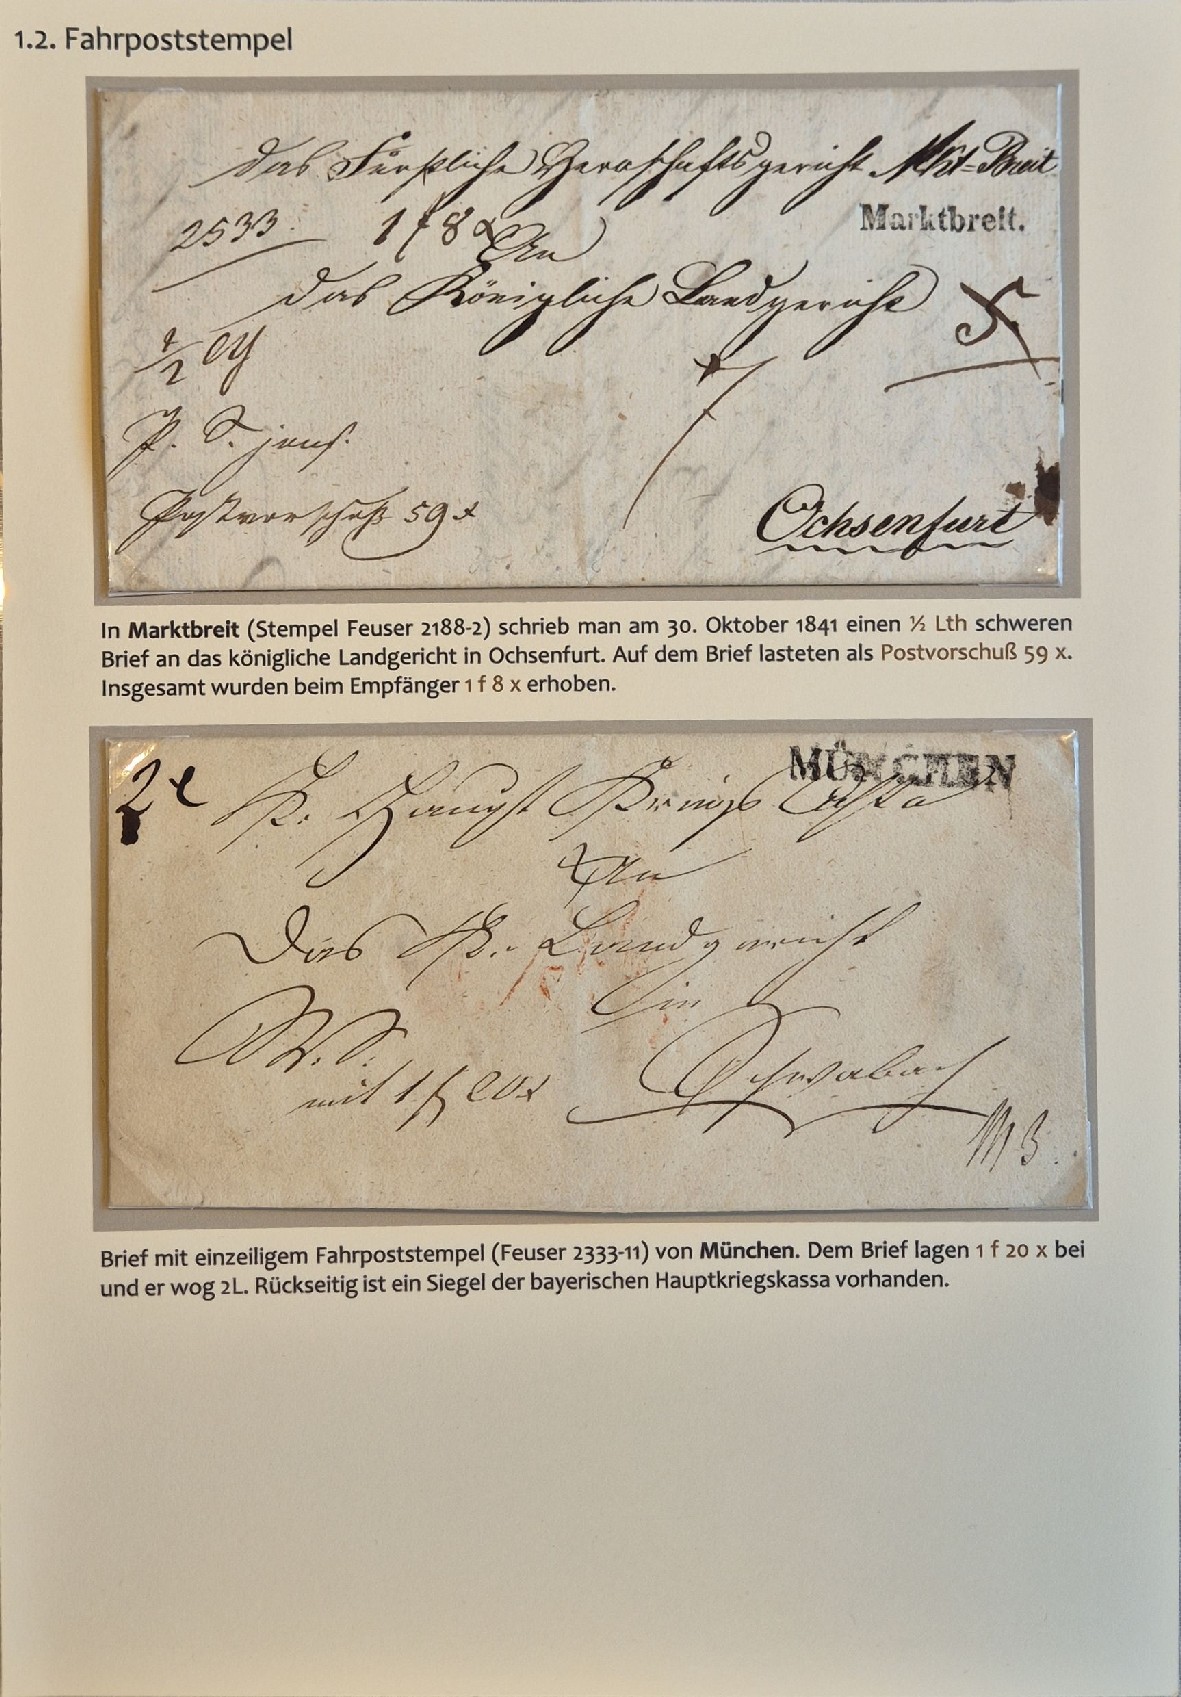 1.2. Fahrpoststempel
das Fürstliche Herrschaftsgericht Mkt-Breit
Marktbreit.
2533.
1 f 8 x
An
das Königliche Landgericht
1/2 Lth
P. S. jens.
Postvorschuß 59 x
Ochsenfurt
In Marktbreit (Stempel Feuser 2188-2) schrieb man am 30. Oktober 1841 einen ½ Lth schweren
Brief an das königliche Landgericht in Ochsenfurt. Auf dem Brief lasteten als Postvorschuß 59 x.
Insgesamt wurden beim Empfänger 1 f 8 x erhoben.
MÜNCHEN
2 L
K. Haupt Kriegs Cassa
An
Das K. Landgericht
in
Schwabach
mit 1 f 20 x
Brief mit einzeiligem Fahrpoststempel (Feuser 2333-11) von München. Dem Brief lagen 1 f 20 x bei
und er wog 2L. Rückseitig ist ein Siegel der bayerischen Hauptkriegskassa vorhanden.